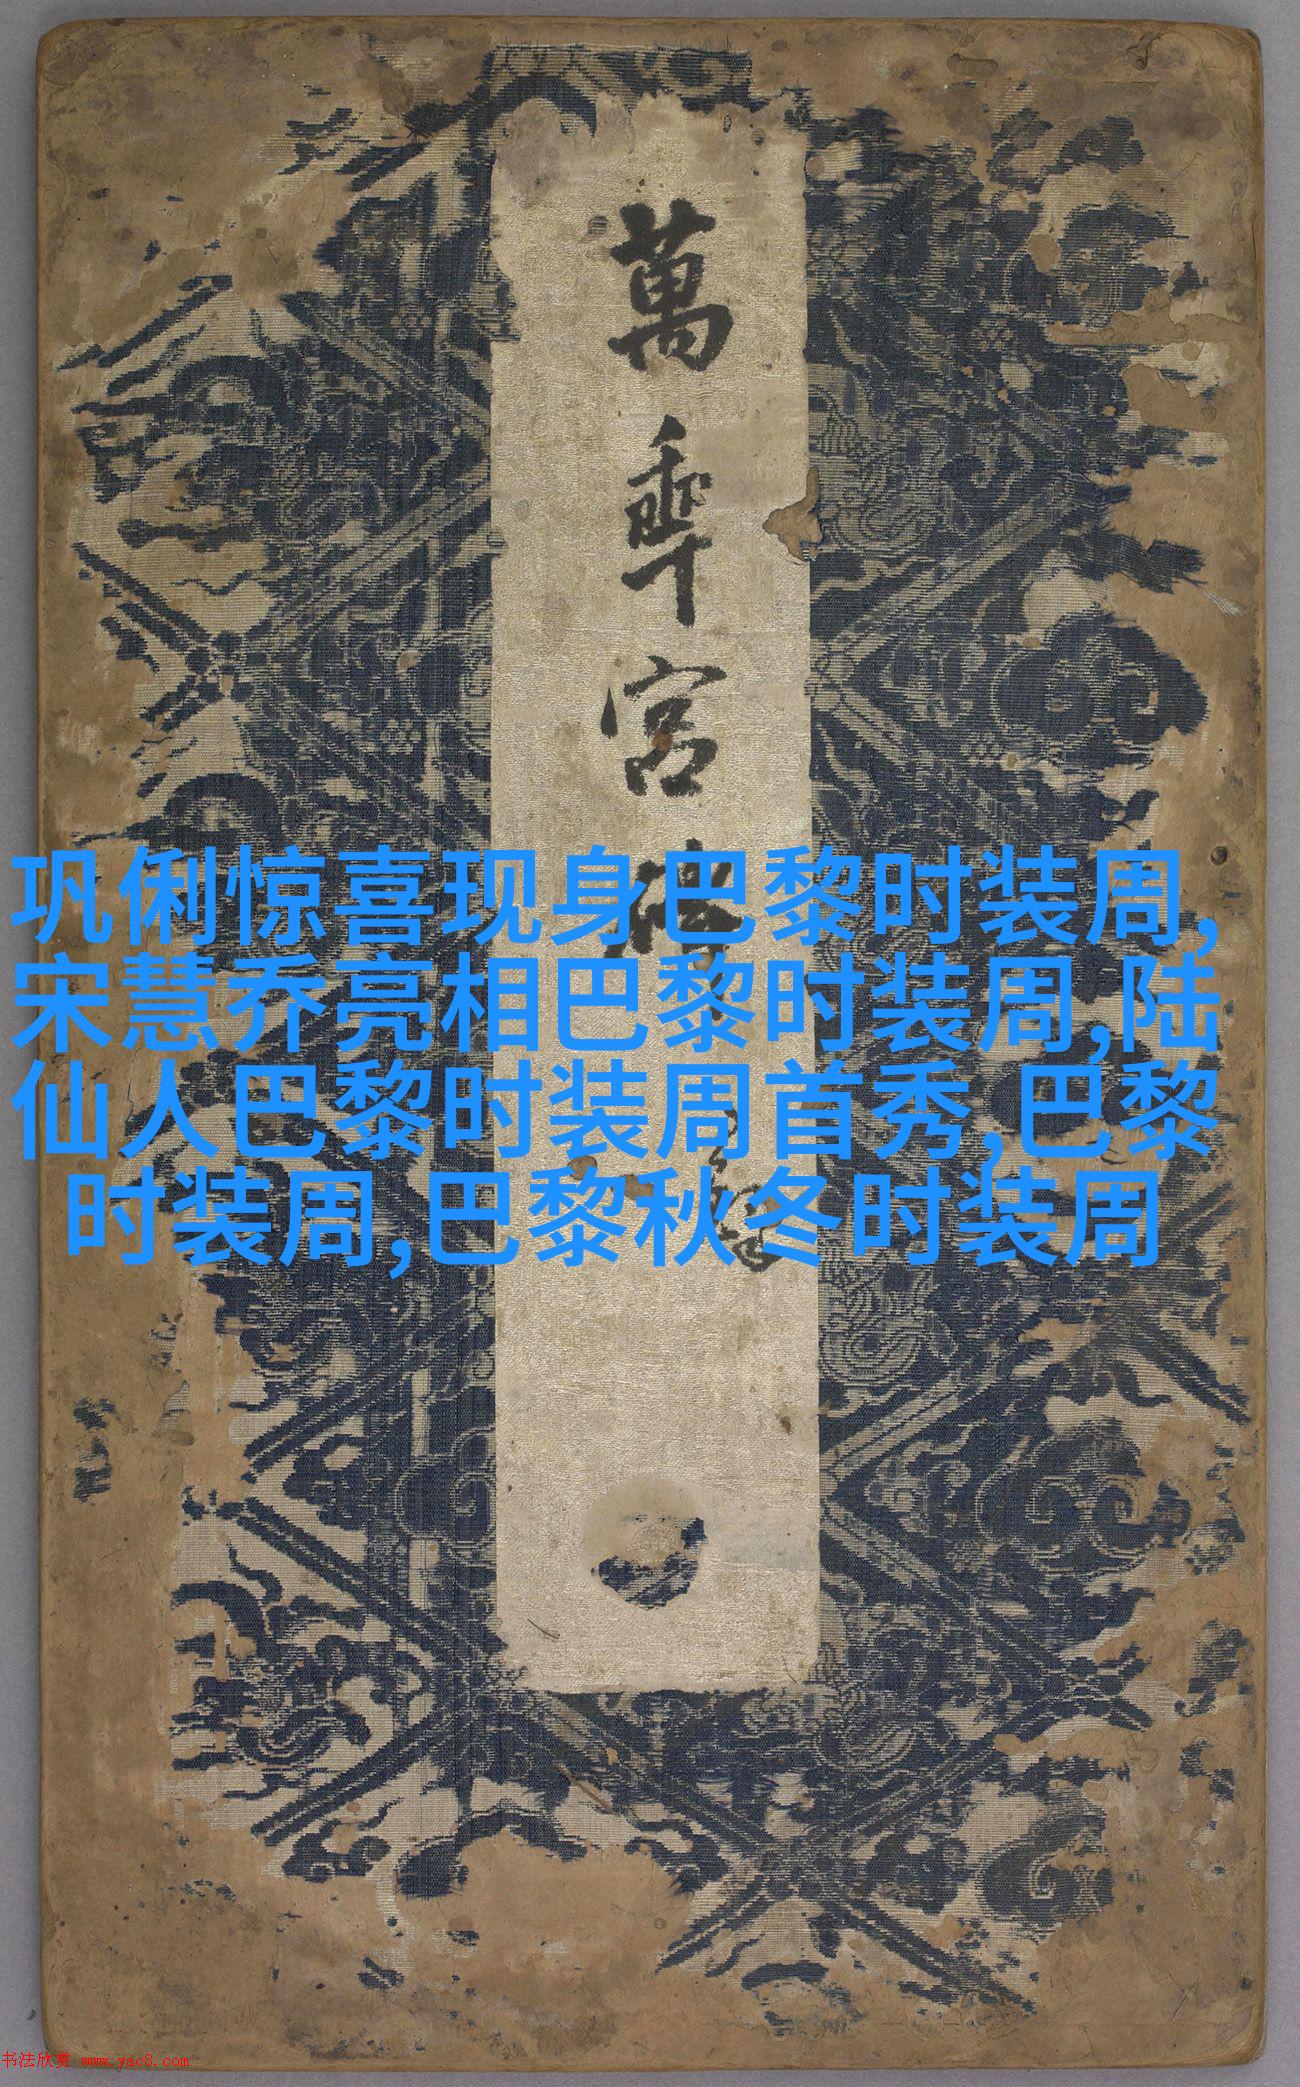 萬年宮碑
巩俐惊喜现身巴黎时装周,
宋慧乔亮相巴黎时装周,陆
仙人巴黎时装周首秀,巴黎
时装周,巴黎秋冬时装周
书法欣赏 www.yac8.com